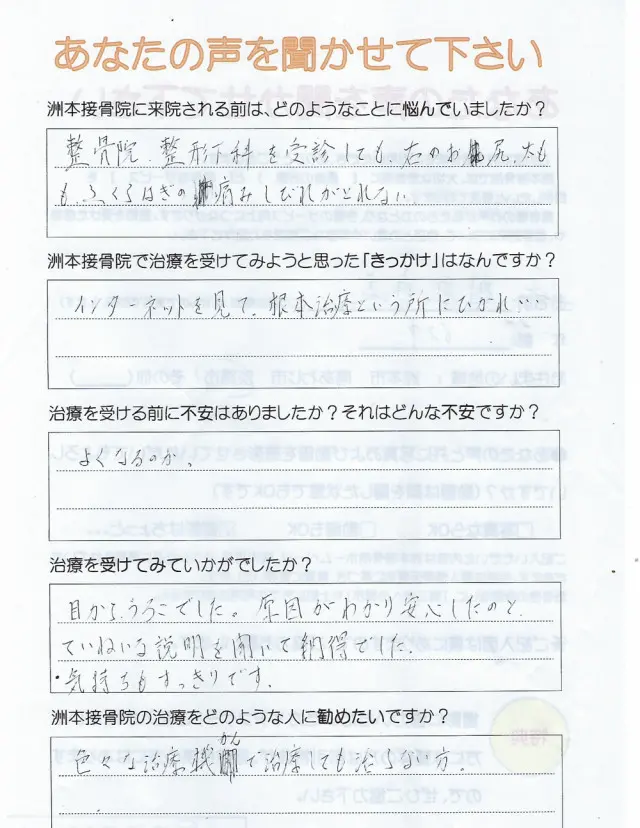 あなたの声を聞かせて下さい
洲本接骨院に来院される前は、どのようなことに悩んでいましたか？
整骨院、整形外科を受診しても、右のお尻、太も
も、ふくらはぎの痛みしびれがとれない
洲本接骨院で治療を受けてみようと思った「きっかけ」はなんですか？
インターネットを見て、根本治療という所にひかれ
治療を受ける前に不安はありましたか？それはどんな不安ですか？
よくなるのか。
治療を受けてみていかがでしたか？
目からうろこでした。原因がわかり安心したのと
ていねいな説明を聞いて納得でした。
・気持ちもすっきりです。
洲本接骨院の治療をどのような人に勧めたいですか？
かん
色々な治療機関で治療しても治らない方。